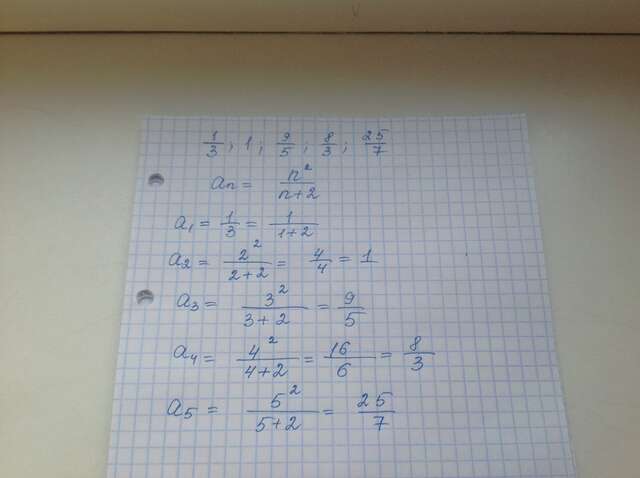 1/3 ; 1 ; 9/5 ; 8/3 ; 25/7
aₙ = n²/(n+2)
a₁ = 1/3 = 1/(1+2)
a₂ = 2²/(2+2) = 4/4 = 1
a₃ = 3²/(3+2) = 9/5
a₄ = 4²/(4+2) = 16/6 = 8/3
a₅ = 5²/(5+2) = 25/7